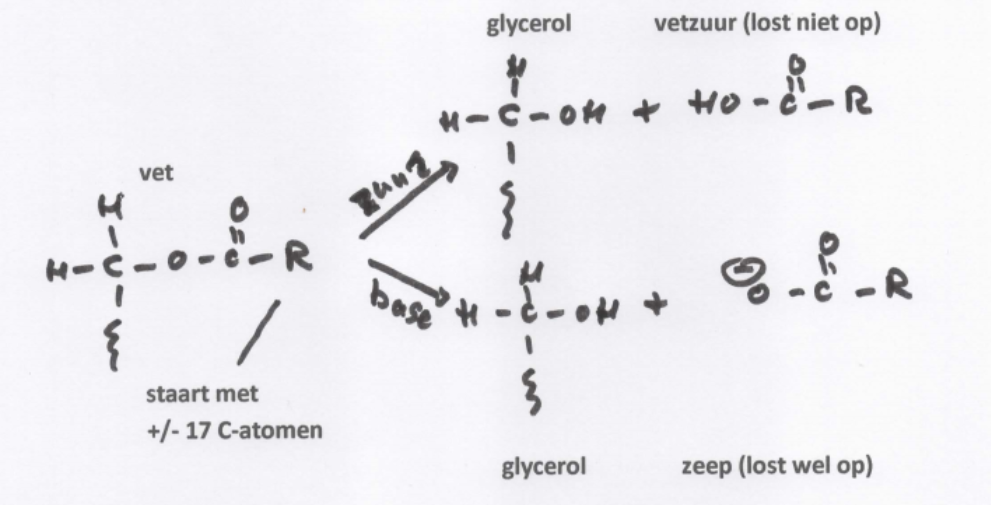 glycerol vetzuur (lost niet op)
H O
H-C-OH + HO-C-R
zuur
vet
H O
H-C-O-C-R
base
H O
H-C-OH + ⊖O-C-R
staart met
+/- 17 C-atomen
glycerol zeep (lost wel op)